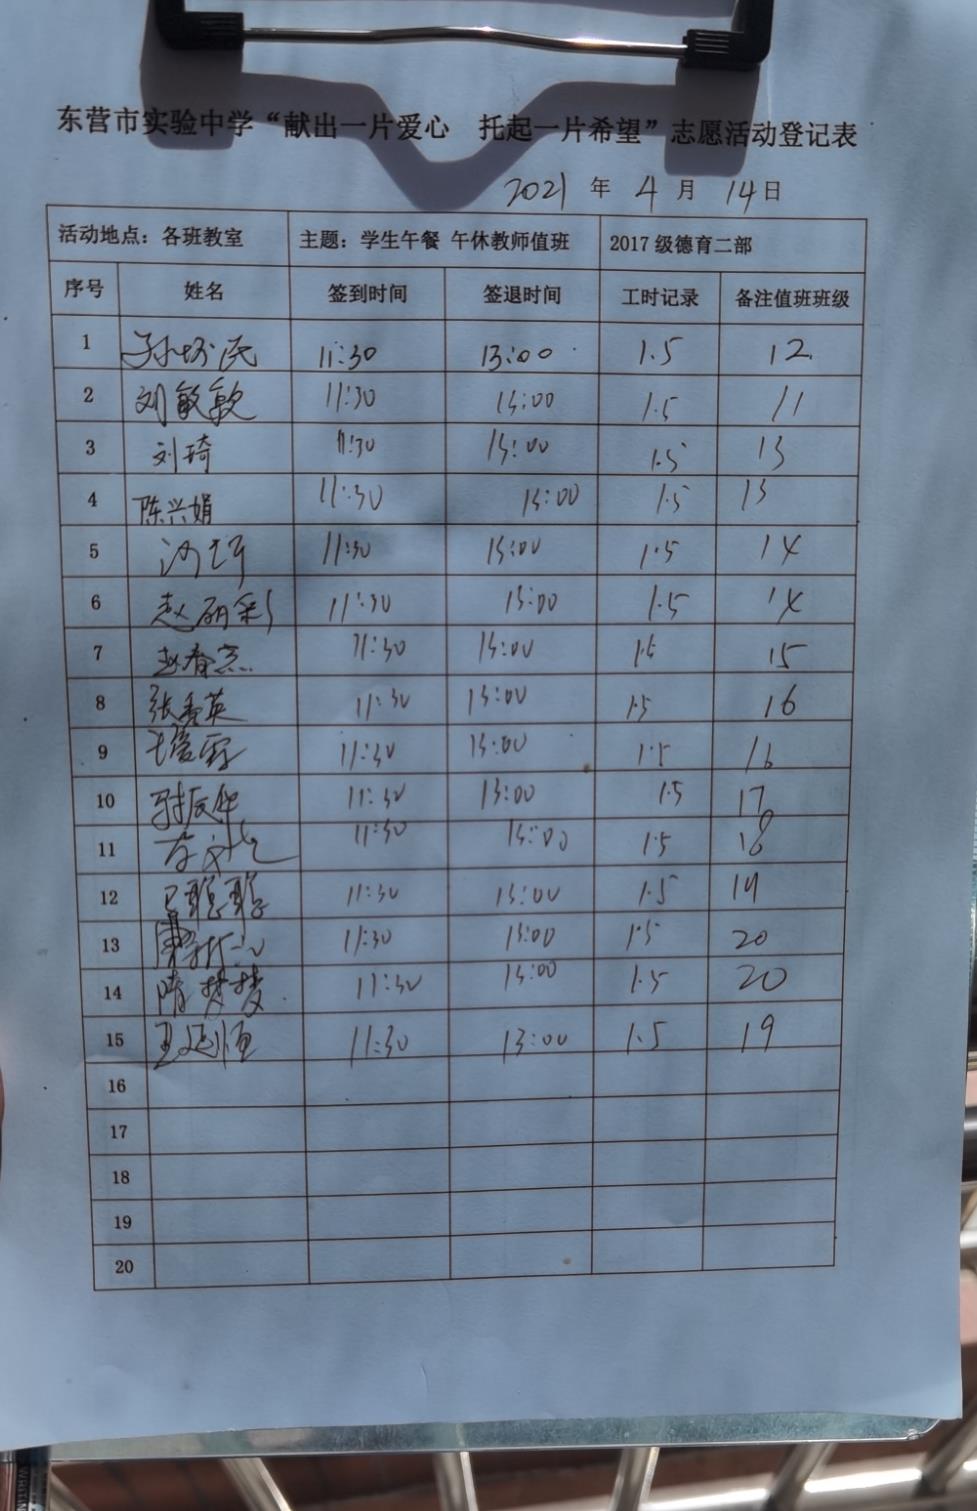 东营市实验中学“献出一片爱心 托起一片希望”志愿活动登记表
2021 年 4 月 14 日
活动地点：各班教室 主题：学生午餐 午休教师值班 2017 级德育二部
序号 姓名 签到时间 签退时间 工时记录 备注值班班级
1 民 11:30 13:00 1.5 12
2 刘敏敏 11:30 13:00 1.5 11
3 刘琦 11:30 13:00 1.5 13
4 陈兴娟 11:30 13:00 1.5 13
5 11:30 13:00 1.5 14
6 赵丽彩 11:30 13:00 1.5 14
7 赵春杰 11:30 13:00 1.5 15
8 张秀英 11:30 13:00 1.5 16
9 11:30 13:00 1.5 16
10 11:30 13:00 1.5 17
11 11:30 13:00 1.5 18
12 聪聪 11:30 13:00 1.5 19
13 11:30 13:00 1.5 20
14 隋梦梦 11:30 13:00 1.5 20
15 王延恒 11:30 13:00 1.5 19
16
17
18
19
20